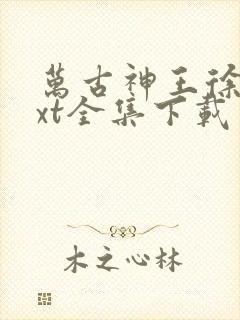 萬古神王徐
xt全集下載
木之心林